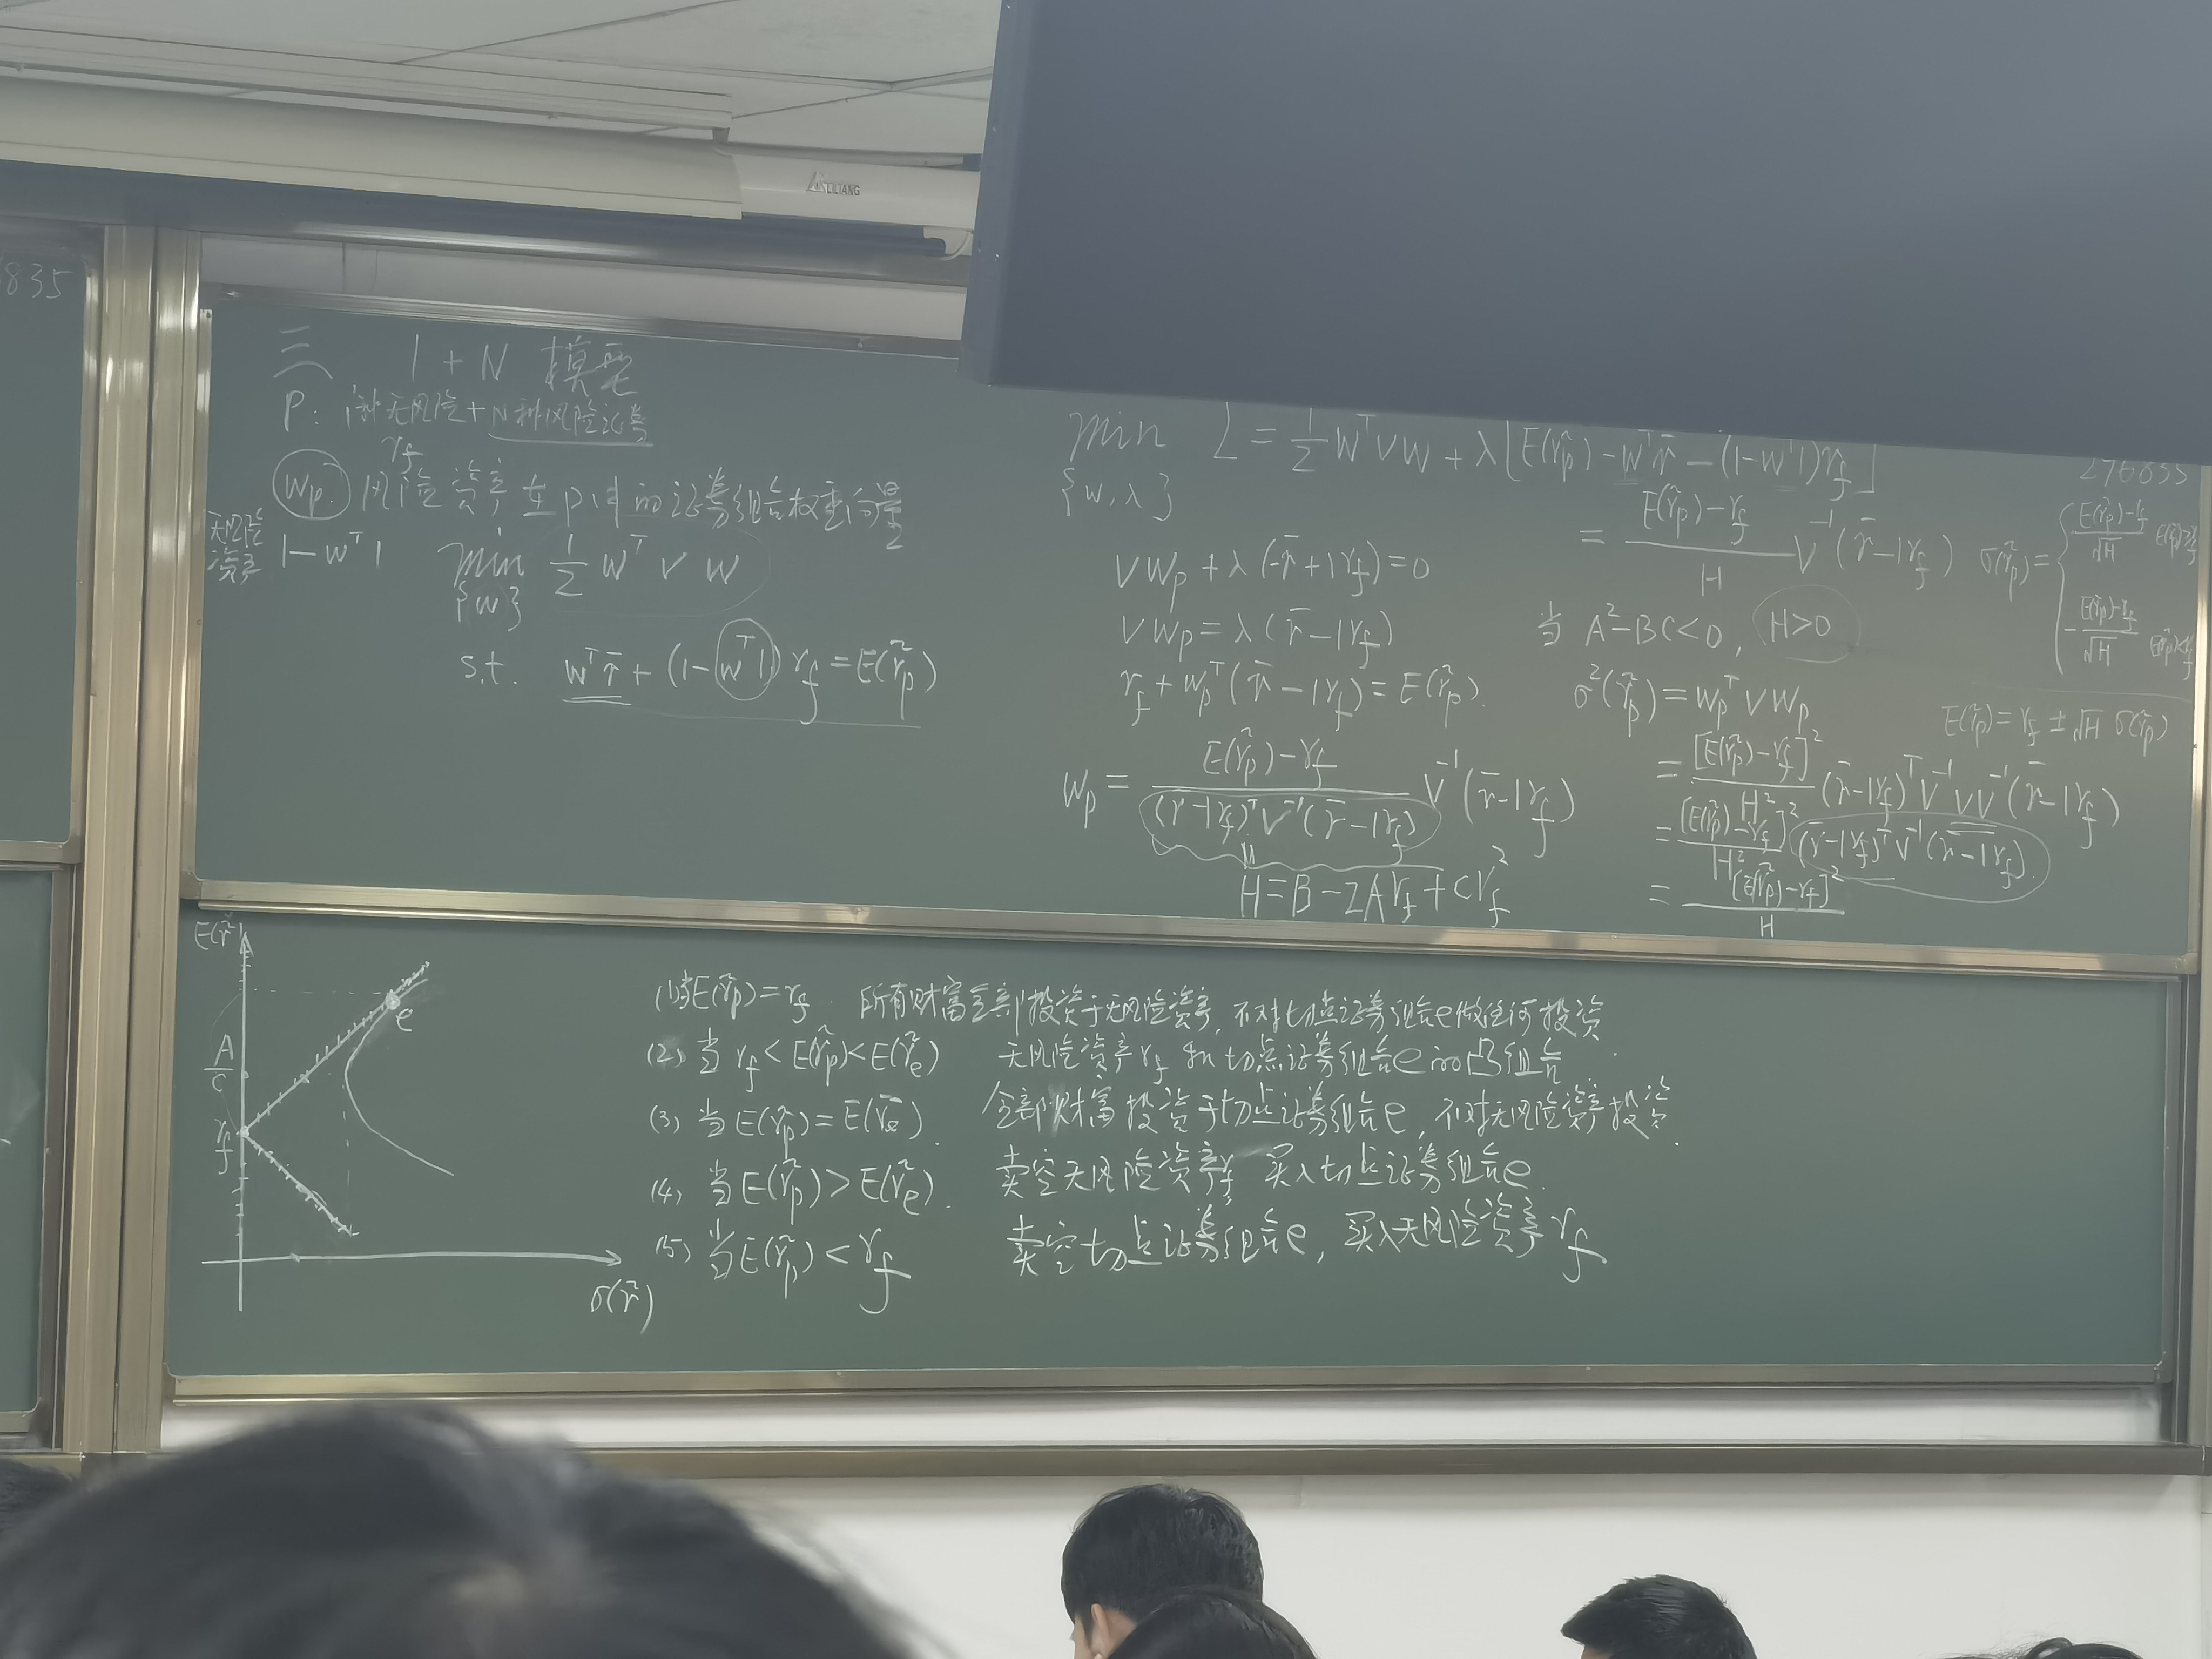 835
LIANG
三 1+N 模型
P: 1种无风险+N种风险证券
r_f
w_p 风险资产在P中的证券组合权重向量
无风险资产 1-w^T 1
min_{w} 1/2 w^T V w
s.t. w^T r̄ + (1-w^T 1) r_f = E(r̃_p)
min_{w,λ} L = 1/2 w^T V w + λ[E(r̃_p) - w^T r̄ - (1-w^T 1) r_f]
V w_p + λ(-r̄ + 1r_f) = 0
V w_p = λ(r̄ - 1r_f)
r_f + w_p^T(r̄ - 1r_f) = E(r̃_p).
w_p = (E(r̃_p) - r_f) / ((r̄ - 1r_f)^T V^-1 (r̄ - 1r_f)) V^-1 (r̄ - 1r_f)
H = B - 2Ar_f + Cr_f^2
= (E(r̃_p) - r_f) / H V^-1 (r̄ - 1r_f)
当 A²-BC<0, H>0
σ²(r̃_p) = w_p^T V w_p
= [E(r̃_p) - r_f]² / H² (r̄ - 1r_f)^T V^-1 V V^-1 (r̄ - 1r_f)
= [E(r̃_p) - r_f]² / H² (r̄ - 1r_f)^T V^-1 (r̄ - 1r_f).
= [E(r̃_p) - r_f]² / H
276835
σ(r̃_p) = { (E(r̃_p) - r_f) / √H
-(E(r̃_p) - r_f) / √H
E(r̃_p) = r_f ± √H σ(r̃_p)
E(r̃)
e
A/C
r_f
σ(r̃)
(1) 当E(r̃_p) = r_f. 所有财富全部投资于无风险资产, 不对切点证券组合e做任何投资
(2) 当 r_f < E(r̃_p) < E(r̃_e) 无风险资产r_f 和切点证券组合e的凸组合.
(3) 当 E(r̃_p) = E(r̃_e). 全部财富投资于切点证券组合e, 不对无风险资产投资.
(4) 当 E(r̃_p) > E(r̃_e). 卖空无风险资产r_f 买入切点证券组合e.
(5) 当 E(r̃_p) < r_f 卖空切点证券组合e, 买入无风险资产 r_f